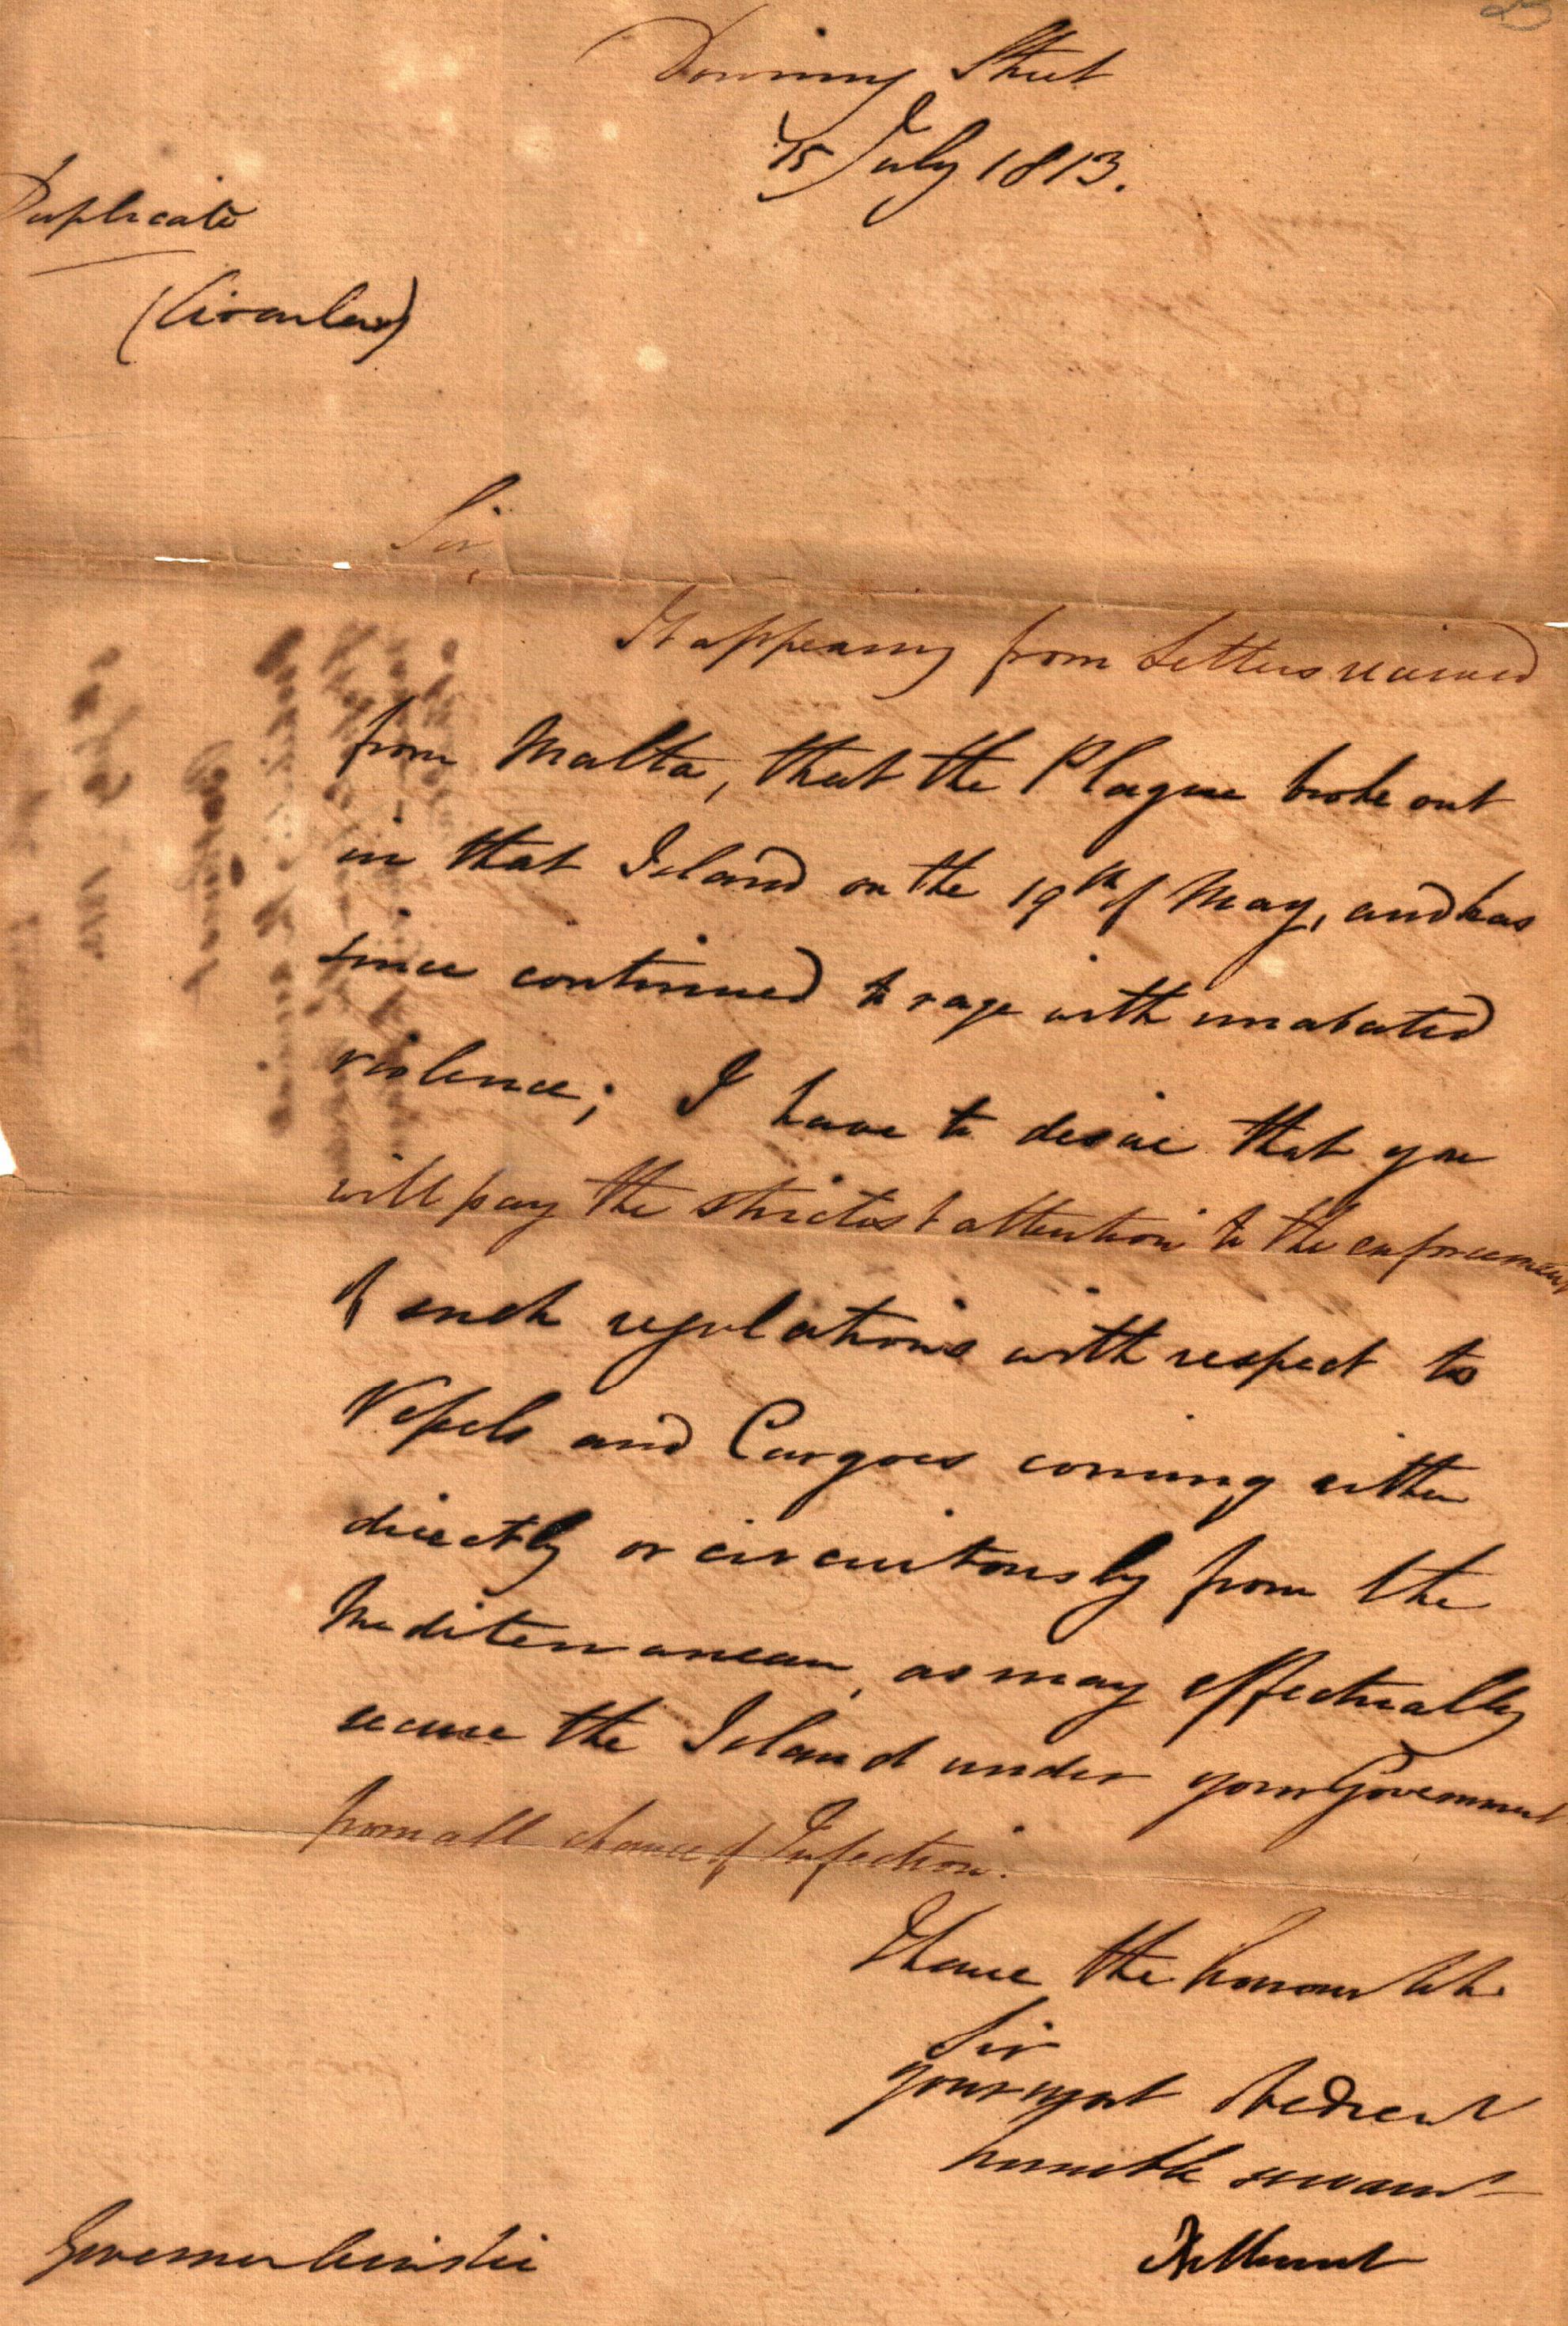 Downing Street
15 July 1813.
Duplicate
(Circular)
Sir,
It appearing from Letters received
from Malta, that the Plague broke out
in that Island on the 19th of May, and has
since continued to rage with unabated
violence; I have to desire that you
will pay the strictest attention to the enforcement
of such regulations with respect to
Vessels and Cargoes coming either
directly or circuitously from the
Mediterranean, as may effectually
secure the Island under your Government
from all chance of Infection.
I have the honour to be
Sir
your most obedient
humble servant
Bathurst
Governor Ainslie